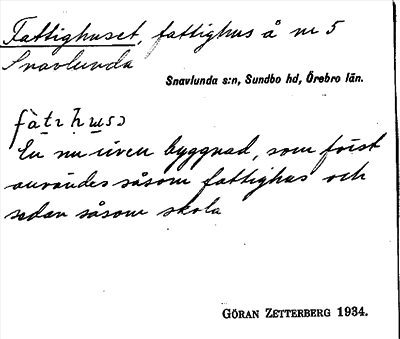 Fattighuset, fattighus å nr 5
Snavlunda
Snavlunda s:n, Sundbo hd, Örebro län.
En nu riven byggnad, som först
användes såsom fattighus och
sedan såsom skola
GÖRAN ZETTERBERG 1934.